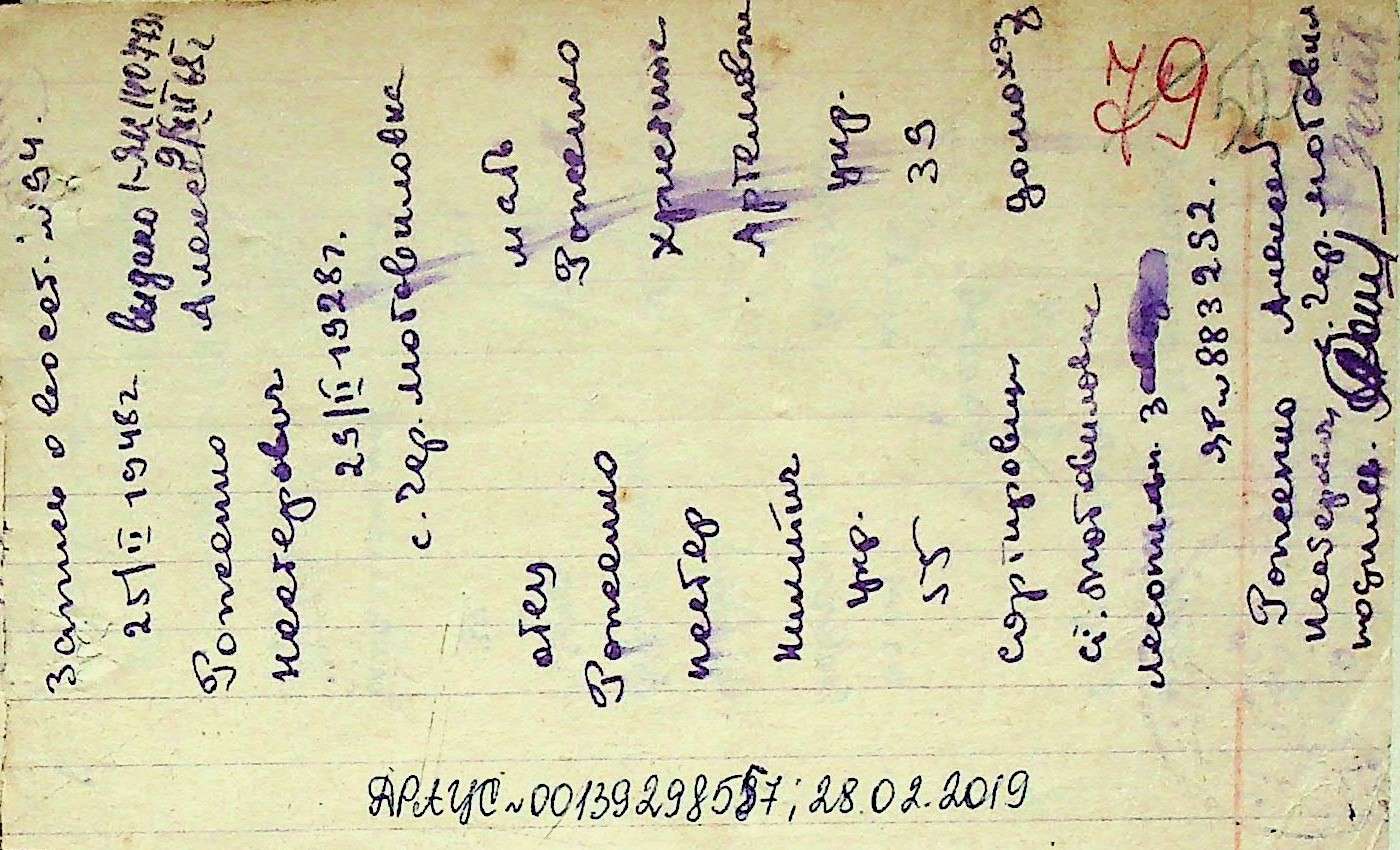 Запись о восст. № 94.
25/II 1948г. выдано I-ЯЦ 140473
Алексей
Роженко
Нестерович
29/II 1928г.
с. Чер. Мотовиловка
отец мать
Роженко Роженко
Нестер Христина
Никитич Артемовна
укр. укр.
55 39
сортировщик домохоз
ст. Мотовиловка
79
Лесопильн. 3
ЯР № 883292.
Роженко Алексей
Нестерович, Чер. Мотовил
подпись.
ДРАЦС № 00139298587; 28.02.2019